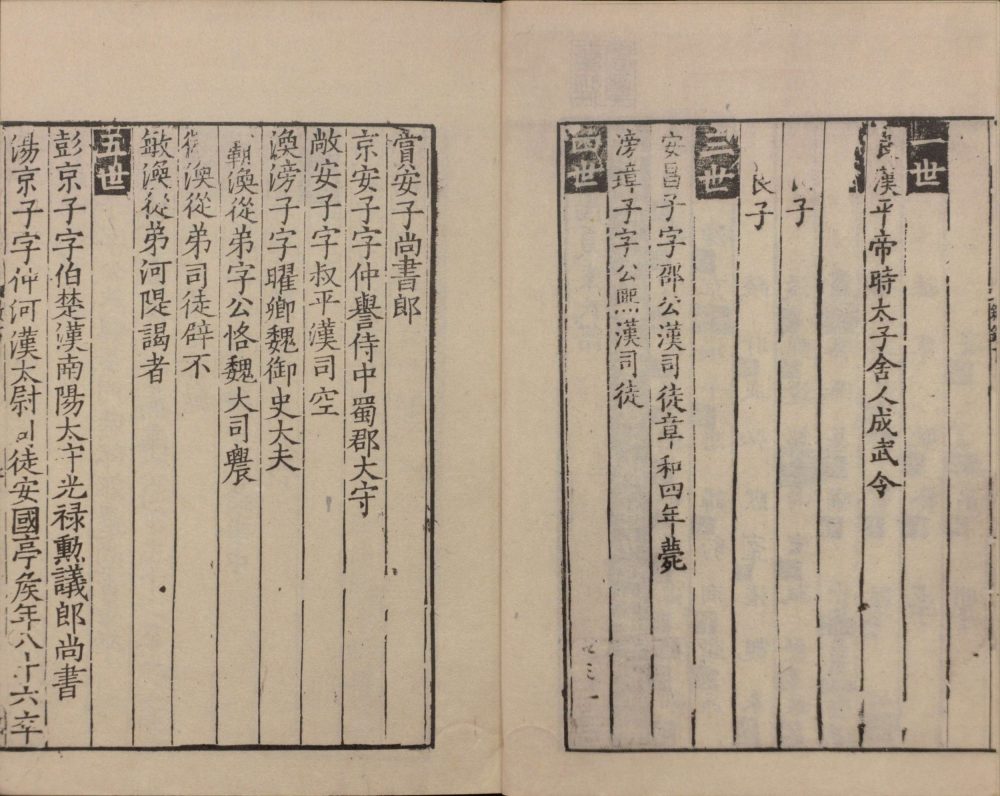 一世
良漢平帝時太子舍人成武令
子
良子
三世
安昌子字邵公漢司徒章和四年薨
滂璋子字公熙漢司徒
四世
賞安子尚書郎
京安子字仲譽侍中蜀郡大守
敞安子字叔平漢司空
渙滂子字曜卿魏御史大夫
渙從弟字公恪魏大司農
渙從弟司徒辟不
敏渙從弟河隄謁者
五世
彭京子字伯楚漢南陽太守光禄勲議郎尚書
湯京子字仲河漢太尉司徒安國亭矦年八十六卒